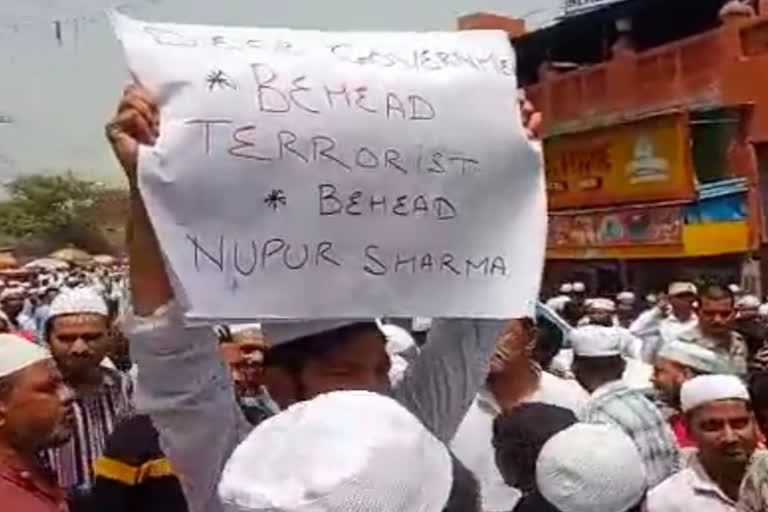 DEER GOVERNME
* BEHEAD
TERRORIST
* BEHEAD
NUPUR SHARMA